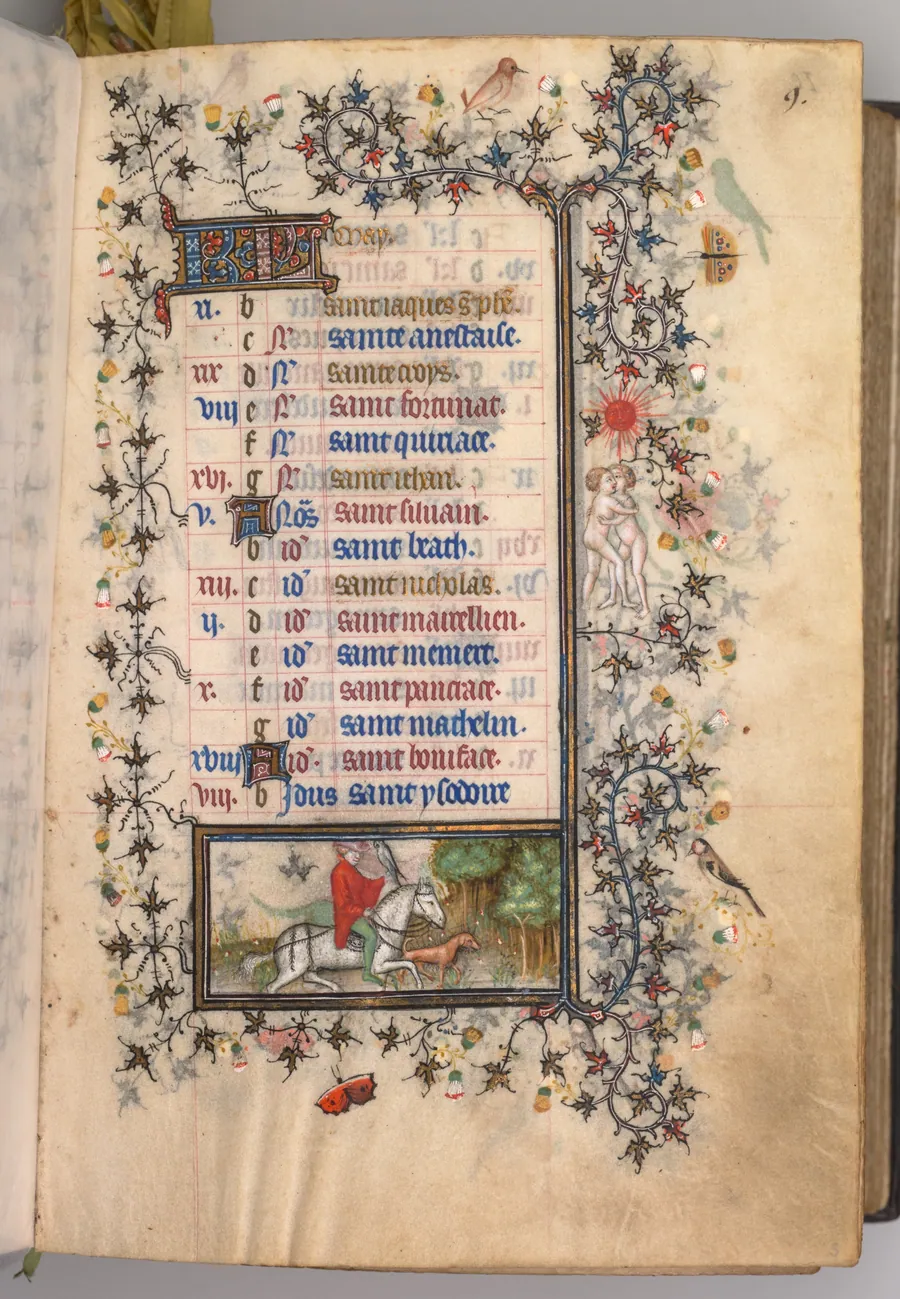 9.
KL May.
xi. b saint iaques s. phe.
c N sainte anestaise.
xix d N sainte croys.
viii e N saint fortunat.
f N saint quiriace.
xvi. g N saint iehan.
v. A Nōs saint siluain.
b id' saint beath.
xiii. c id' saint nicholas.
ii. d id' saint
e id' saint memert.
x. f id' saint pancrace.
g id' saint mathelin.
xviii A id'. saint boniface.
viii. b Idus saint ysodore